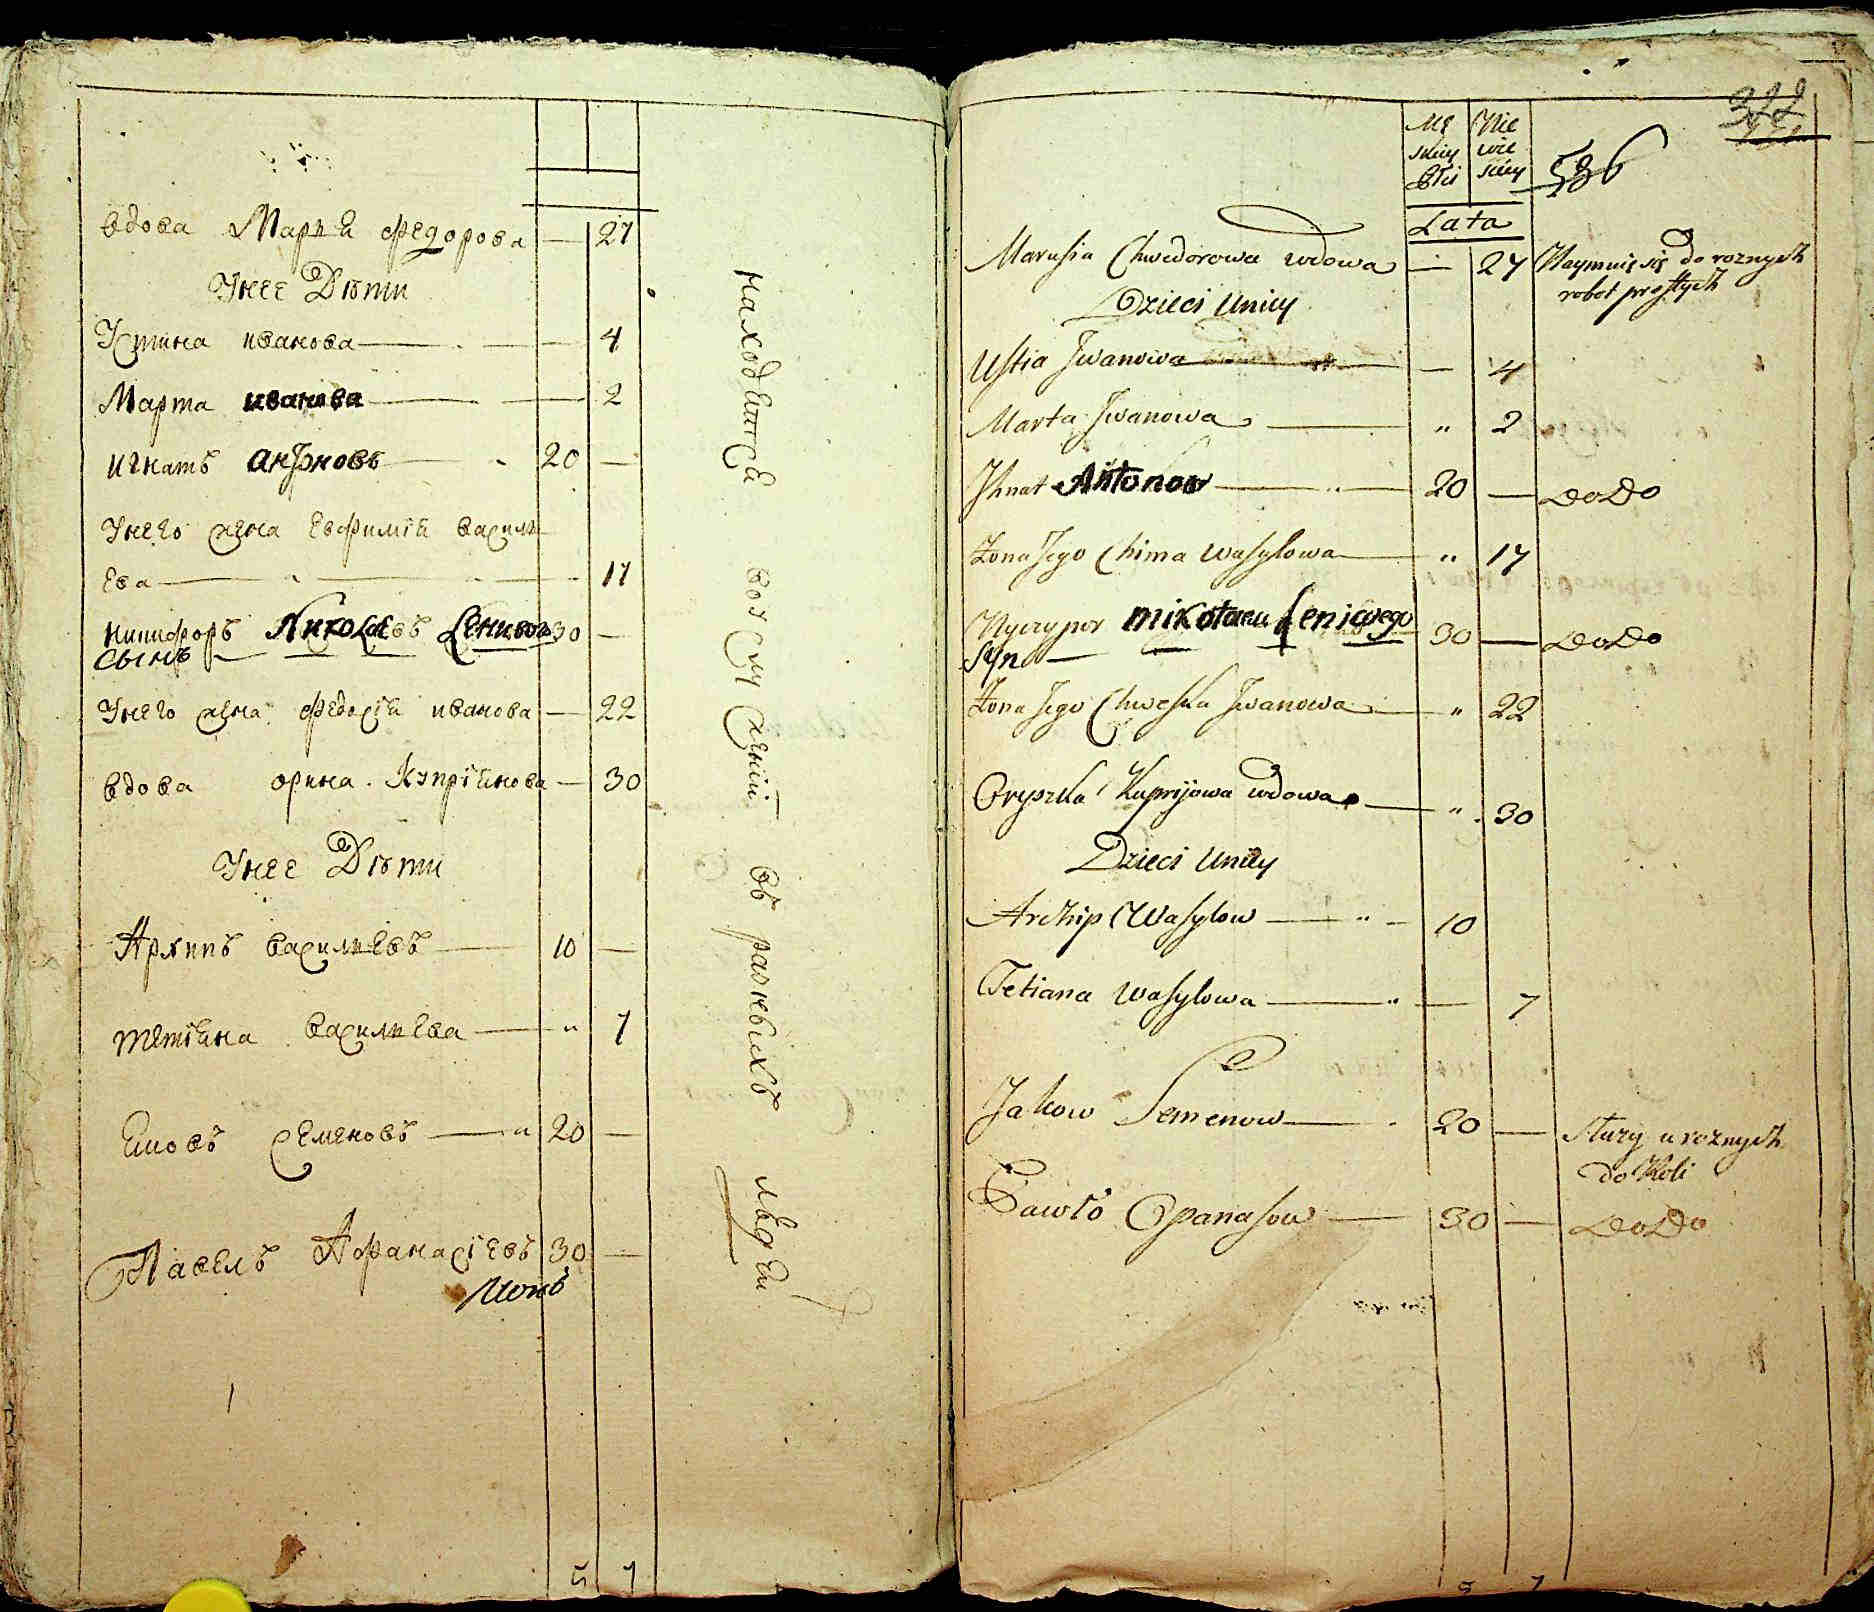 вдова Марья Федорова — 27
Унее Дѣти
Устина иванова — 4
Марта иванова — 2
игнатъ антоновъ 20 —
Унего жена Евфимія Василь
ева — 17
Никифоръ Николаевъ Ленивого 30 —
сынъ
Унего жена Федосія иванова — 22
вдова орина Купріянова — 30
Унее Дѣти
Архипъ васильевъ 10 —
Тетіяна васильева — „ 7
Яковъ Семеновъ — „ 20 —
Павелъ Афанасіевъ 30 —
5 7
находятся вослуженіи въ разныхъ людей
322
Mę Nie
skiey wie
Płci skiey
586
Lata
Marusia Chwedorowa wdowa — 27 Naymuię się do roznych
robot prostych
Dzieci Uniey
Ustia Jwanowa — 4
Marta Jwanowa — „ 2
Jhnat Antonow — 20 — DoDo
Żona Jego Chima Wasylowa — „ 17
Nyczypor Mikołaia Leniwego 30 — DoDo
syn
Żona Jego Chweska Jwanowa — „ 22
Oryszka Kuprijowa wdowa — „ 30
Dzieci Uniey
Archip Wasylow — „ — 10
Tetiana Wasylowa — „ — 7
Jakow Semenow — 20 — Służy u roznych
do Koli
Pawło Opanasow — 30 — DoDo
5 7